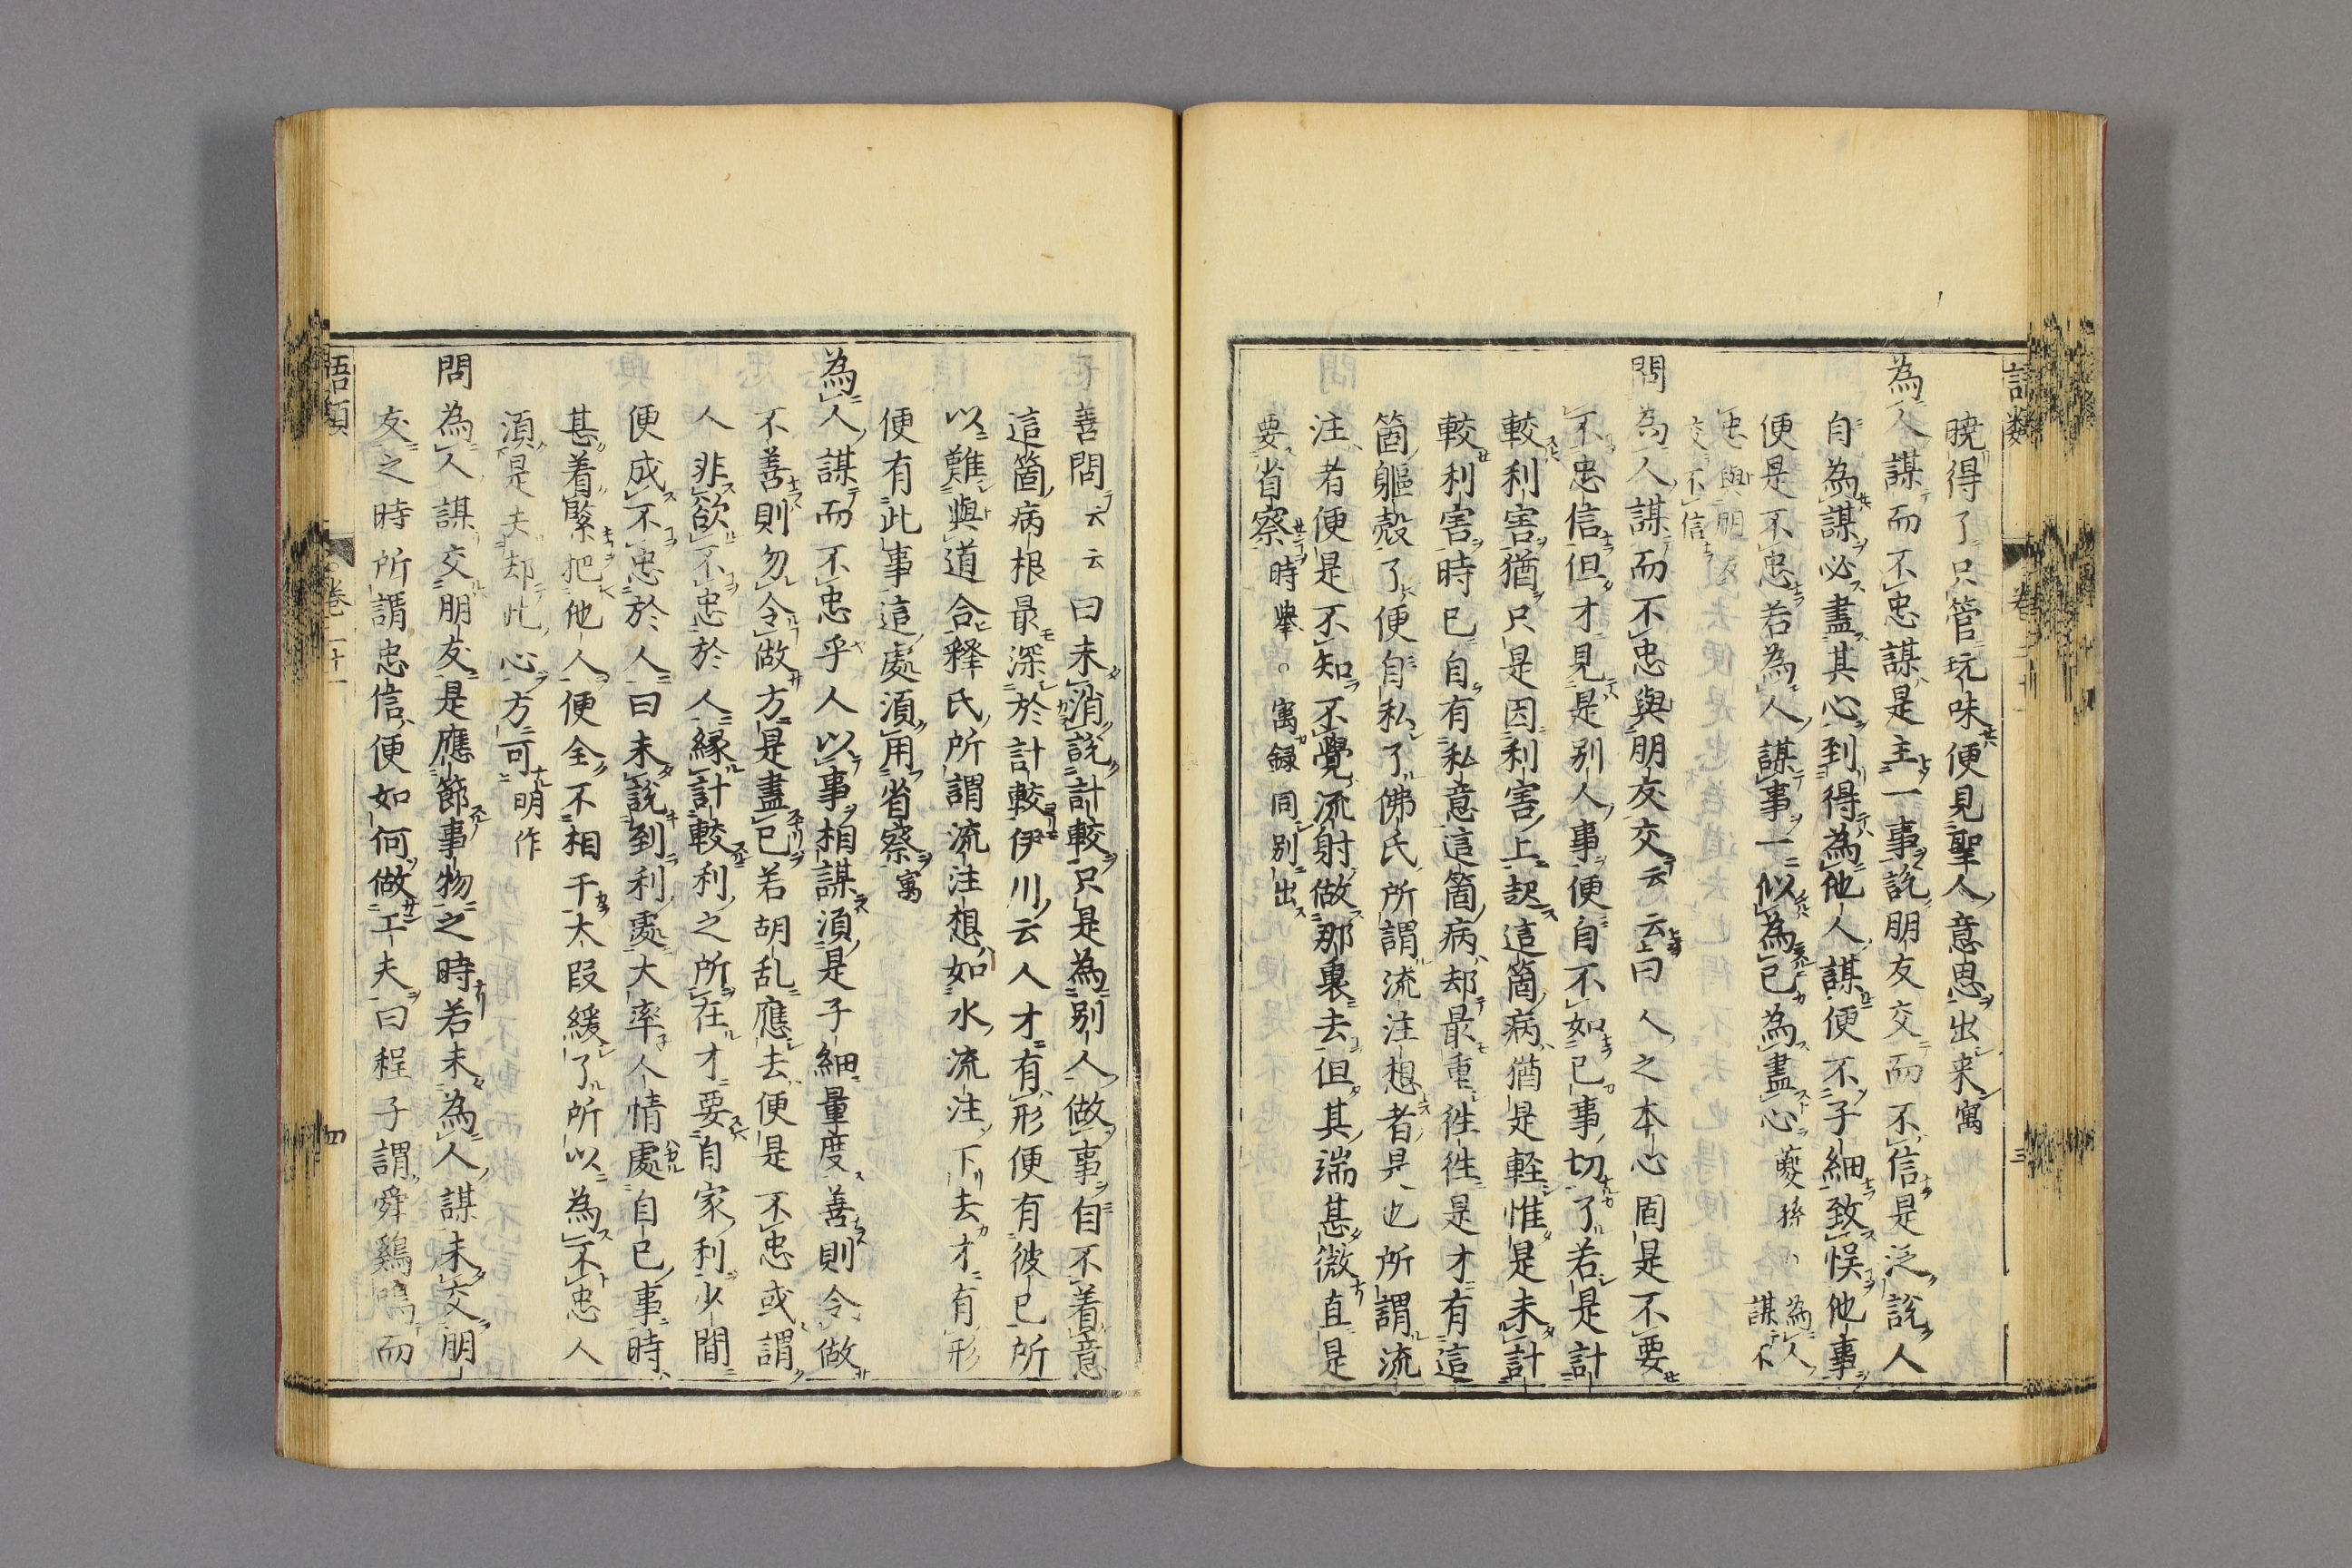 語類 卷二十一 三
曉得了只管玩味便見聖人意思出来㝢
為人謀而不忠謀是主一事說朋友交而不信是泛說人
自為謀必盡其心到得為他人謀便不子細致悞他事
便是不忠若為人謀事一似為己為盡心夔孫 為人謀不
忠與朋友
交不信
問為人謀而不忠與朋友交云云曰人之本心固是不要
不忠信但才見是別人事便自不如己事切了若是計
較利害猶只是因利害上起這箇病猶是軽惟是未計
較利害時已自有私意這箇病却最重徃徃是才有這
箇軀殼了便自私了佛氏所謂流注想者是也所謂流
注者便是不知不覺流射做那裏去但其端甚微直是
要省察時舉○㝢録同別出
子善問云云曰未消說計較只是為別人做事自不着意
這箇病根最深於計較伊川云人才有形便有彼已所
以難與道合釋氏所謂流注想如水流注下去才有形
便有此事這處湏用省察㝢
為人謀而不忠乎人以事相謀湏是子細量度善則令做
不善則勿令做方是盡已若胡乱應去便是不忠或謂
人非欲不忠於人縁計較利之所在才要自家利少間
便成不忠於人曰未說到利處大率人情處自已事時
甚着緊把他人便全不相干大叚緩了所以為不忠人
湏是去却此心方可明作
問為人謀交朋友是應節事物之時若未為人謀未交朋
友之時所謂忠信便如何做工夫曰程子謂舜鷄鳴而
語類 卷二十一 四